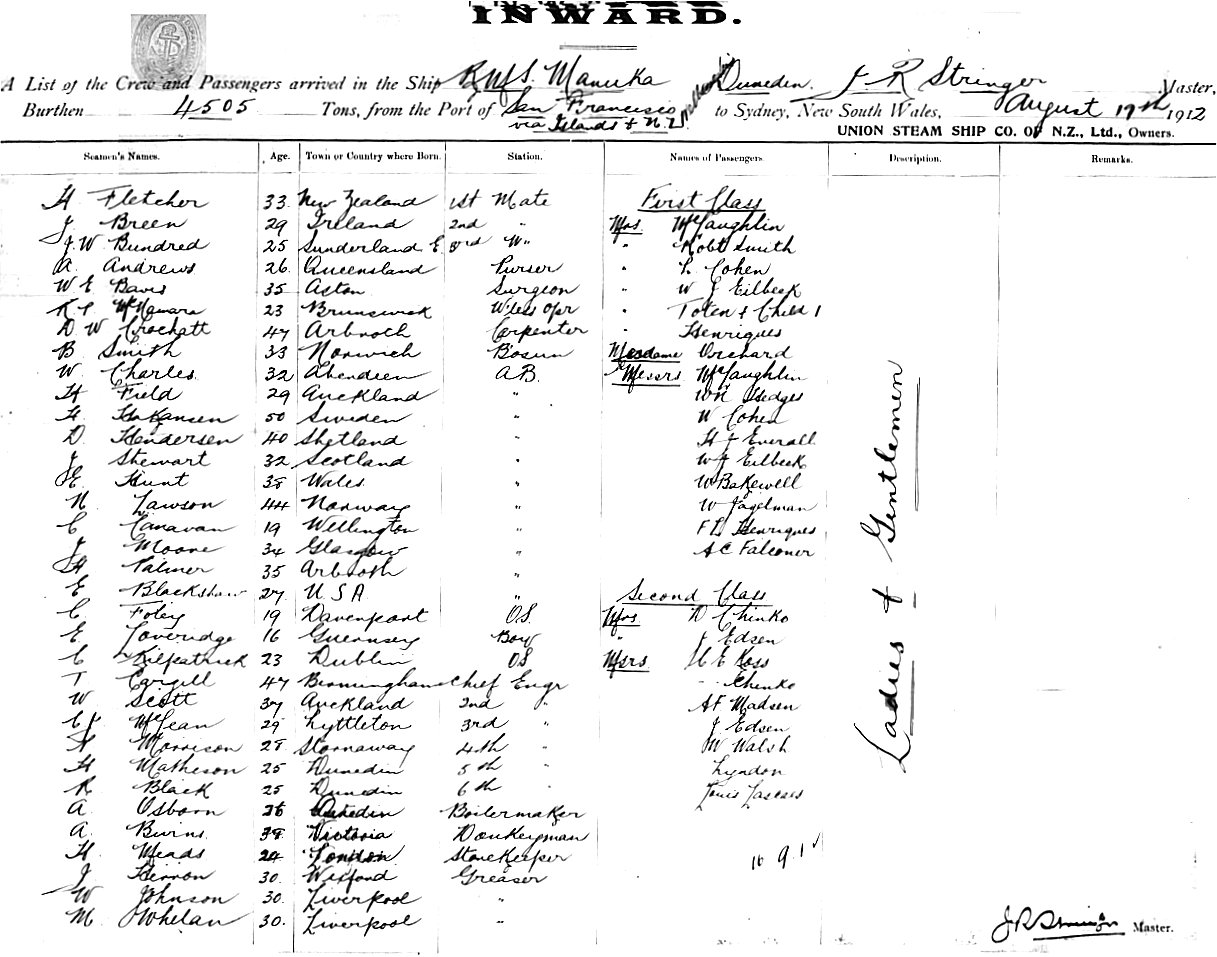 INWARD.
A List of the Crew and Passengers arrived in the Ship RMS. Manuka Dunedin. J. R Stringer Master,
Burthen 4505 Tons, from the Port of San Francisco via Islands & N.Z. to Sydney, New South Wales, August 19th 1912
UNION STEAM SHIP CO. OF N.Z., Ltd., Owners.
Seamen's Names. Age. Town or Country where Born. Station. Names of Passengers. Description. Remarks.
H Fletcher 33 New Zealand 1st Mate First Class
J Breen 29 Ireland 2nd " Mrs. McLaughlin
J. W Bundred 25 Sunderland E. 3rd " " Robt Smith
A. Andrews 26. Queensland Purser " L Cohen
W E Davis 35 Aston Surgeon " W J Eilbeck
R McNamara 23 Brunswick W'less Opr " Toten & Child 1
D W Crockatt 47 Arbroth Carpenter " Henriques
B Smith 33 Norwich Bosun Mesdame Orchard
W Charles 32 Aberdeen A.B. Messrs McLaughlin
H Field 29 Auckland " Hedges
H. Hakansen 50 Sweden " W Cohen
D. Hendersen 40 Shetland " H J Everall
J Stewart 32 Scotland " W J Eilbeck
E Hunt 38 Wales " W Bakewell
N Lawson 44 Norway " W Jagelman
C Canavan 19 Wellington " F L Henriques
J Moore 34 Glasgow " A C Falconer
H Palmer 35 Arbroth "
E Blackshaw 27 U.S.A " Second Class
C Foley 19 Davenport O.S. Mrs D Chinko
E. Loveridge 16 Guernsey Boy " J Edsen
C Kilpatrick 23 Dublin OS Msrs. H E Ross
T Cargill 47 Birmingham Chief Engr " Chinko
W Scott 37 Auckland 2nd " A F Madsen
C J McLean 29 Lyttleton 3rd " J Edsen
N Morrison 28 Stornaway 4th " W Walsh
H Matheson 25 Dunedin 5th " Lyndon
R Black 25 Dunedin 6th " Louis Lascaes
A. Osborn 26 Dunedin Boilermaker
A. Burns 38 Victoria Donkeyman
H Meads 24 London Storekeeper
J Herron 30. Wexford Greaser
W Johnson 30. Liverpool "
M Whelan 30. Liverpool "
Ladies & Gentlemen
J R Stringer Master.